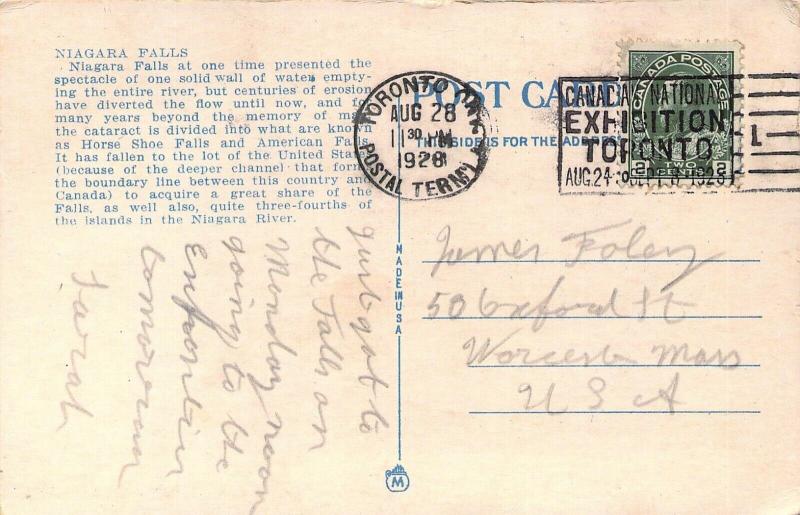 NIAGARA FALLS
Niagara Falls at one time presented the
spectacle of one solid wall of water empty-
ing the entire river, but centuries of erosion
have diverted the flow until now, and for
many years beyond the memory of man
the cataract is divided into what are known
as Horse Shoe Falls and American Falls.
It has fallen to the lot of the United States
(because of the deeper channel that forms
the boundary line between this country and
Canada) to acquire a great share of the
Falls, as well also, quite three-fourths of
the islands in the Niagara River.
just got to
the Falls on
Monday noon
going to the
tomorrow
Sarah
POST CARD
THIS SIDE IS FOR THE ADDRESS
TORONTO
AUG 28
11 30 PM
1928
POSTAL TERM'L
CANADIAN NATIONAL
EXHIBITION
TORONTO
AUG. 24 TO SEPT. 8 1928
CANADA POSTAGE
2 TWO CENTS 2
MADE IN USA
James Foley
50 Oxford St
Worcester Mass
U S A
M